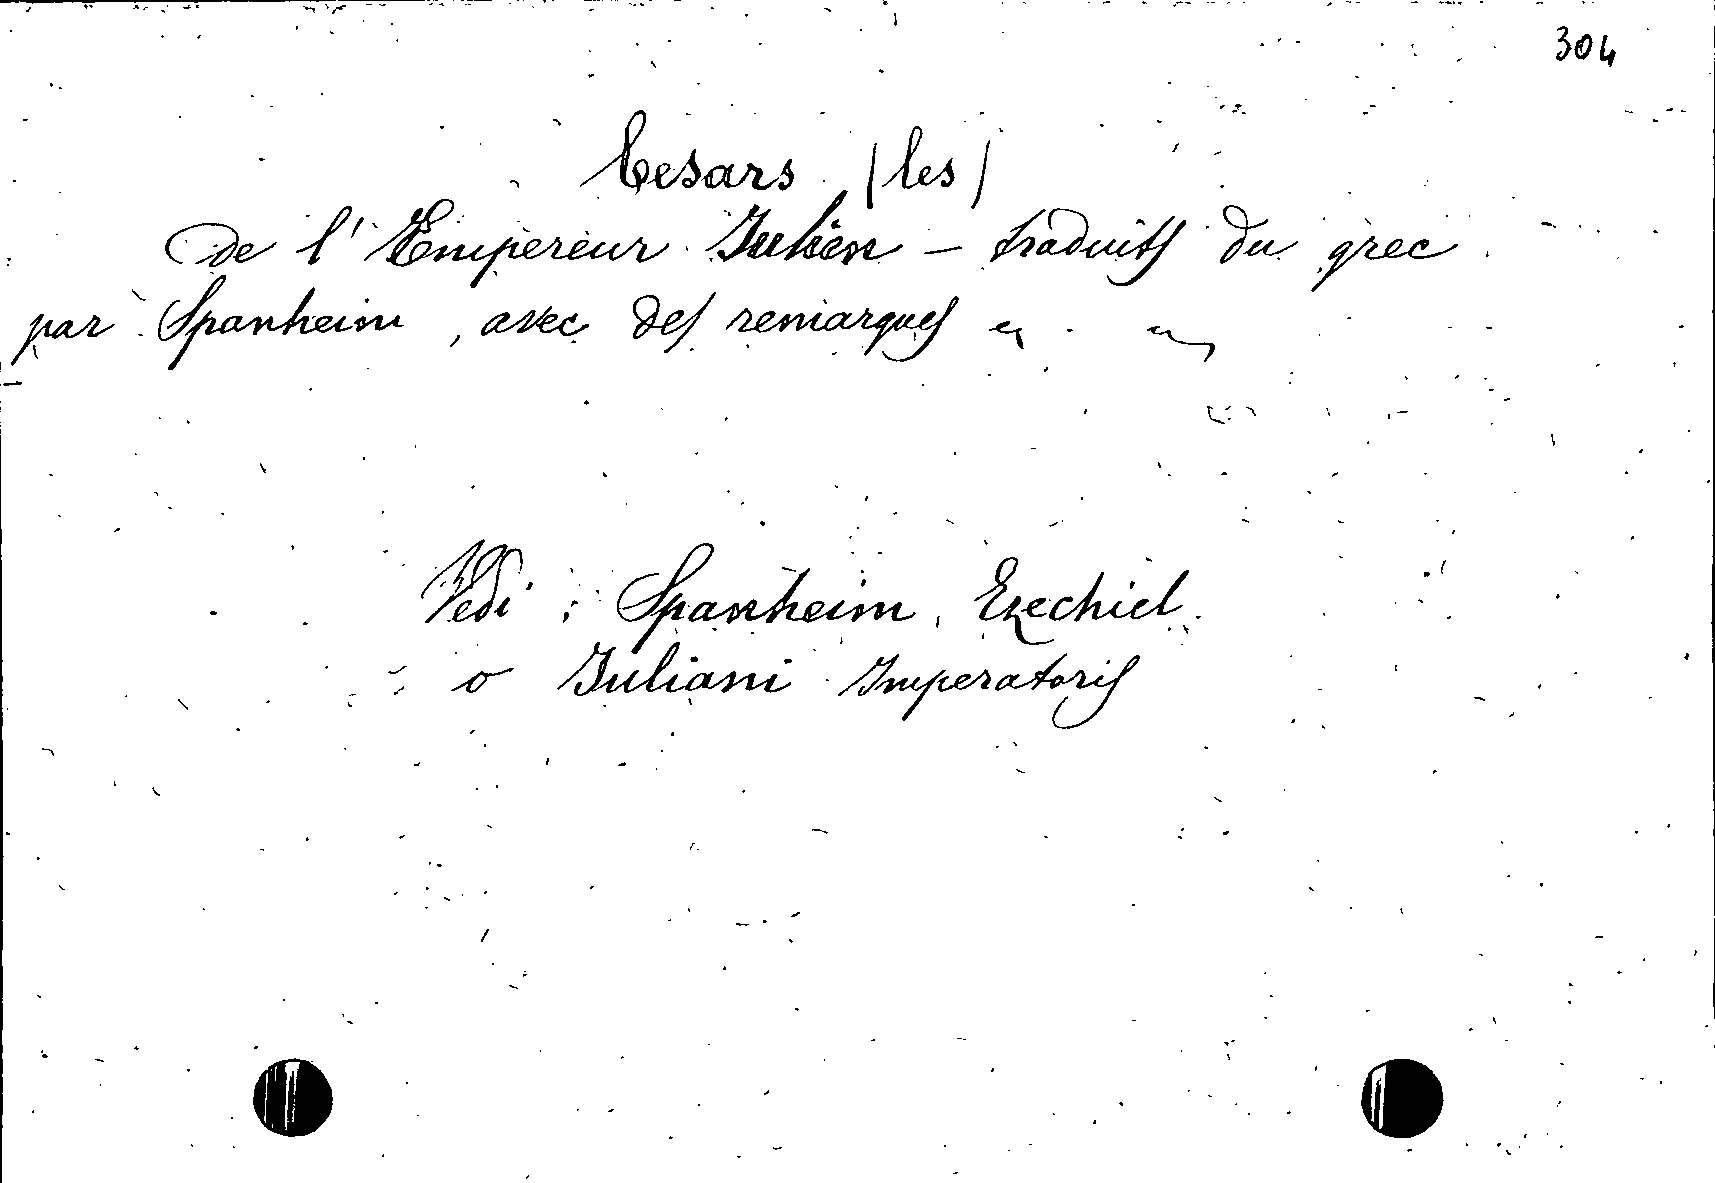 304
Cesars (les)
de l'Empereur Julien - traduits du grec
par Spanheim, avec des remarques
Vedi: Spanheim, Ezechiel
o Juliani Imperatoris